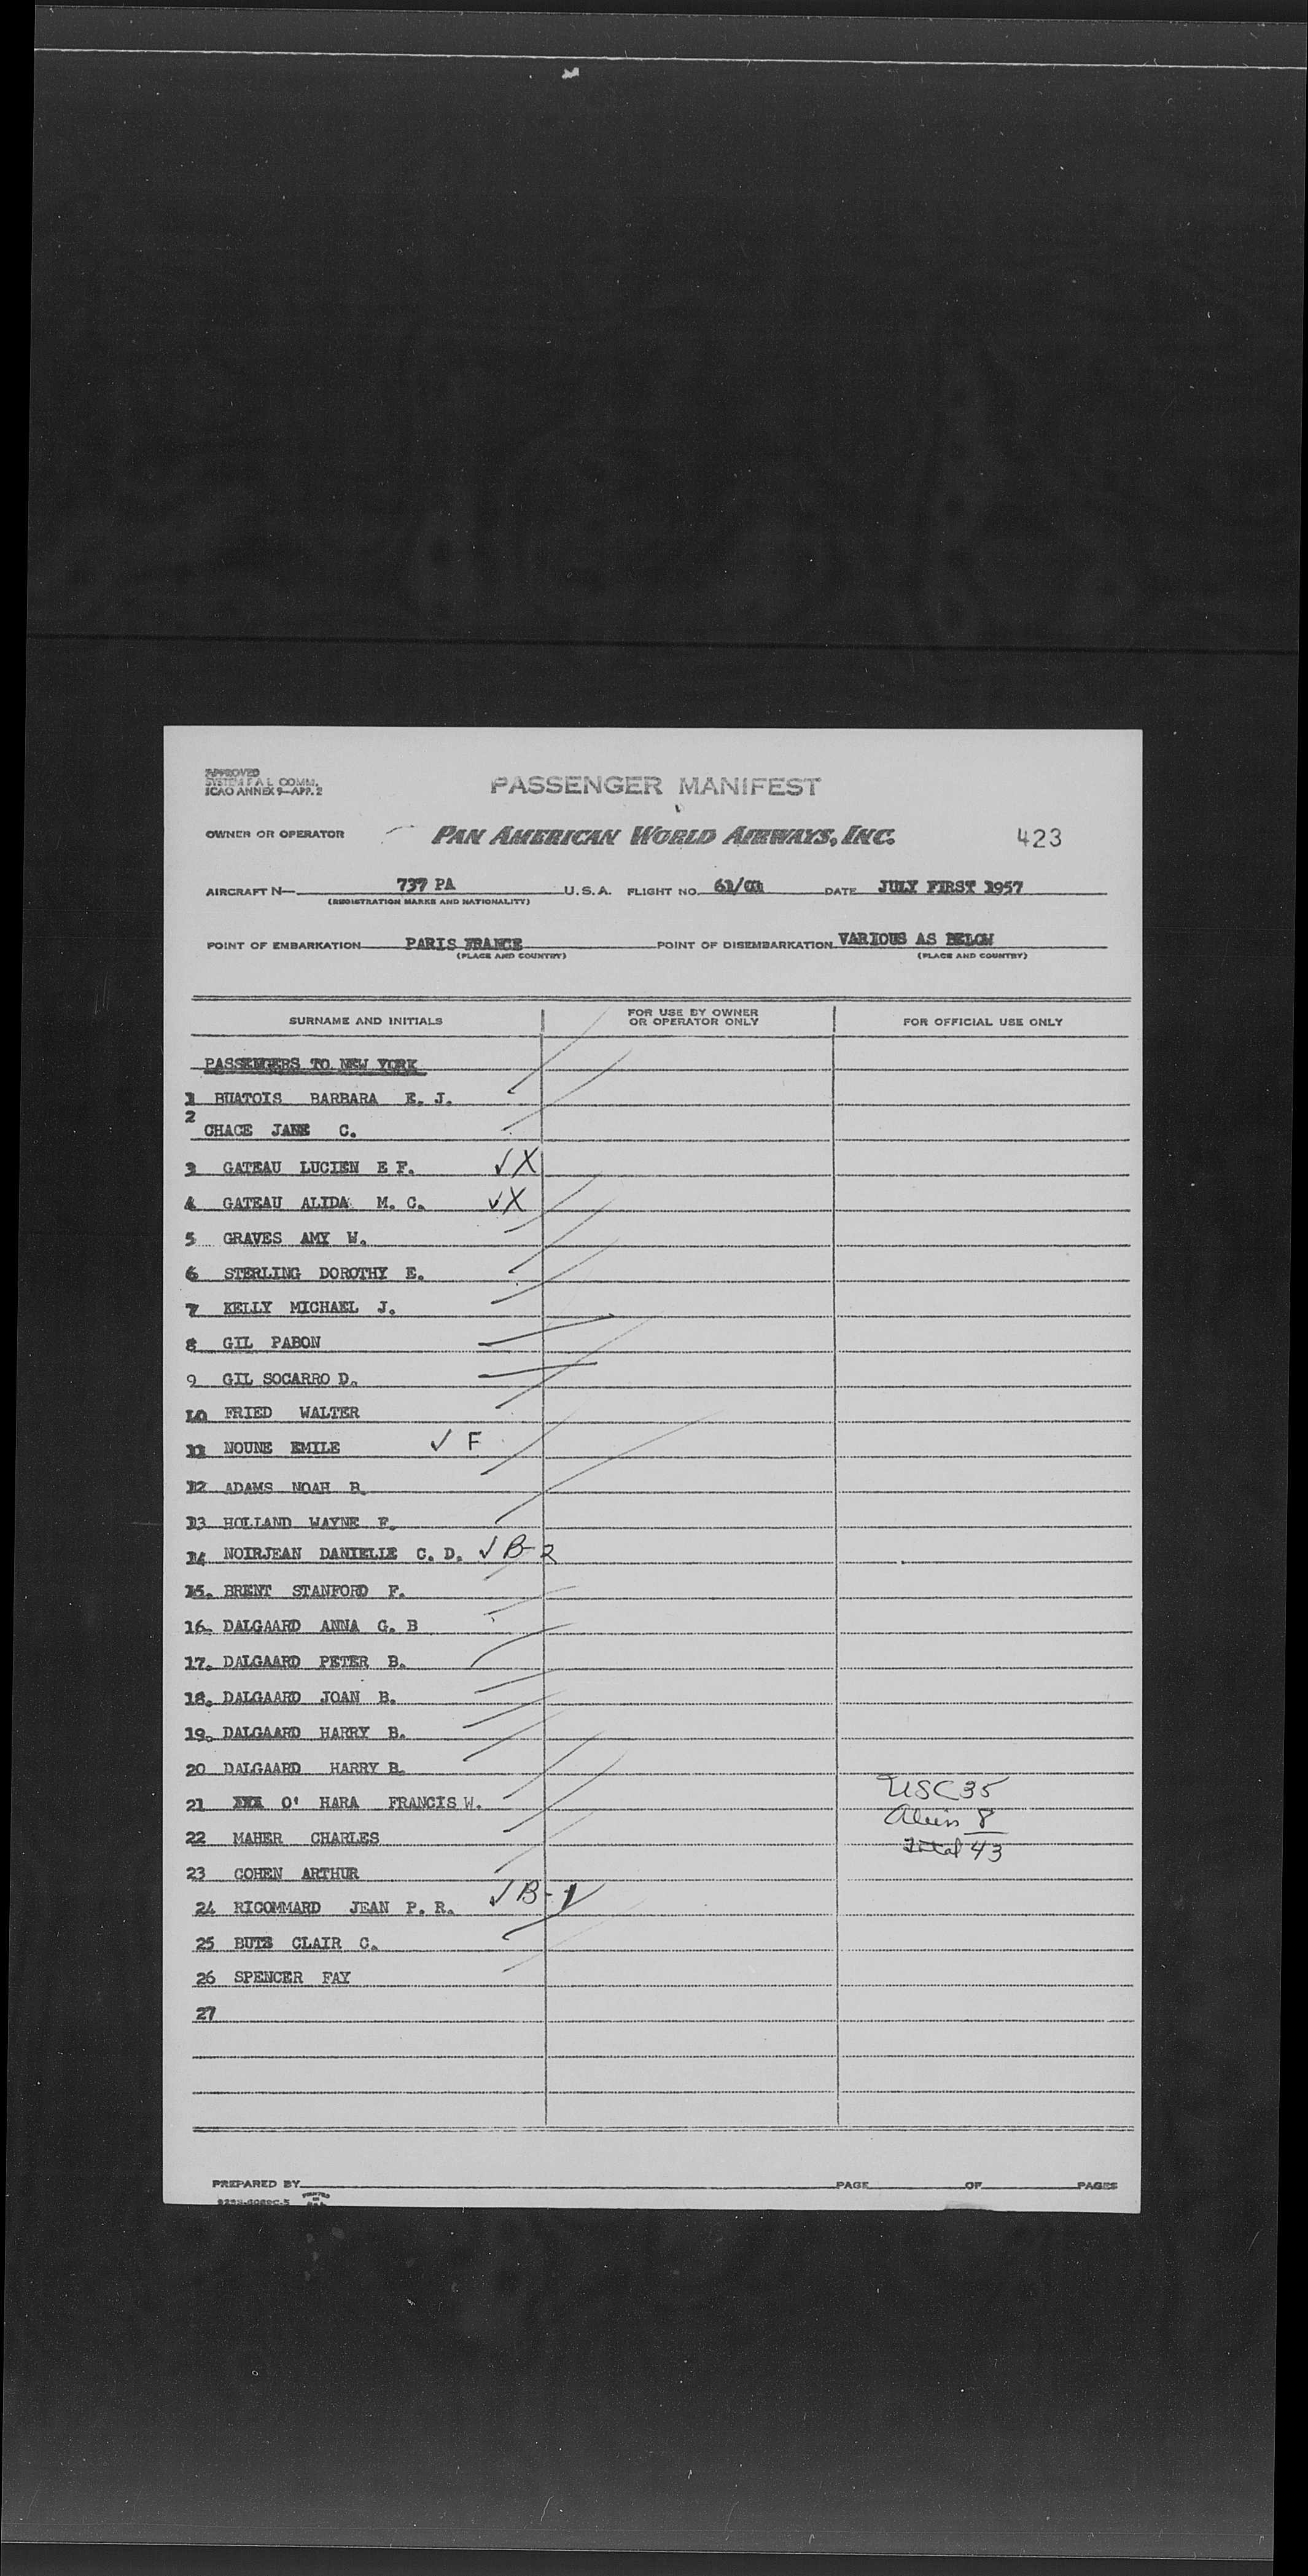 APPROVED
SYSTEM F A L COMM.
ICAO ANNEX 9—APP. 2
PASSENGER MANIFEST
OWNER OR OPERATOR PAN AMERICAN WORLD AIRWAYS, INC. 423
AIRCRAFT N— 737 PA U.S.A. FLIGHT NO. 61/01 DATE JULY FIRST 1957
(REGISTRATION MARKS AND NATIONALITY)
POINT OF EMBARKATION PARIS FRANCE POINT OF DISEMBARKATION VARIOUS AS BELOW
(PLACE AND COUNTRY) (PLACE AND COUNTRY)
SURNAME AND INITIALS FOR USE BY OWNER OR OPERATOR ONLY FOR OFFICIAL USE ONLY
PASSENGERS TO NEW YORK
1 BUATOIS BARBARA E. J.
2 CHACE JANE C.
3 GATEAU LUCIEN E F. ✓ X
4 GATEAU ALIDA M. C. ✓ X
5 GRAVES AMY W.
6 STERLING DOROTHY E.
7 KELLY MICHAEL J.
8 GIL PABON
9 GIL SOCARRO D.
10 FRIED WALTER
11 NOUNE EMILE ✓ F
12 ADAMS NOAH B.
13 HOLLAND WAYNE F.
14 NOIRJEAN DANIELLE C. D. ✓ B-2
15. BRENT STANFORD F.
16. DALGAARD ANNA G. B
17. DALGAARD PETER B.
18. DALGAARD JOAN B.
19. DALGAARD HARRY B.
20 DALGAARD HARRY B.
USC 35
21 XXX O' HARA FRANCIS W.
Alien 8
22 MAHER CHARLES
Total 43
23 COHEN ARTHUR
24 RICOMMARD JEAN P. R. ✓ B-1
25 BUTS CLAIR C.
26 SPENCER FAY
27
PREPARED BY PAGE OF PAGES